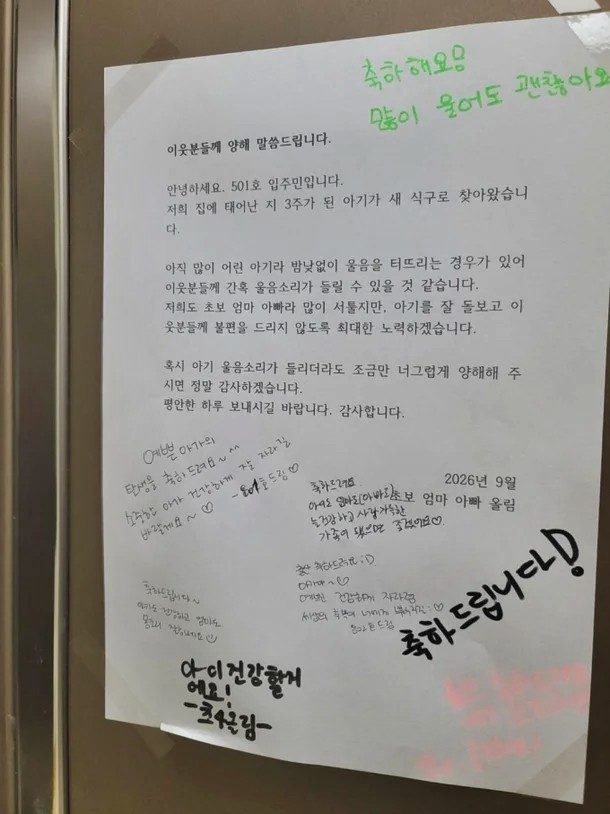 축하해요!
많이 울어도 괜찮아요
이웃분들께 양해 말씀드립니다.
안녕하세요. 501호 입주민입니다.
저희 집에 태어난 지 3주가 된 아기가 새 식구로 찾아왔습니
다.
아직 많이 어린 아기라 밤낮없이 울음을 터뜨리는 경우가 있어
이웃분들께 간혹 울음소리가 들릴 수 있을 것 같습니다.
저희도 초보 엄마 아빠라 많이 서툴지만, 아기를 잘 돌보고 이
웃분들께 불편을 드리지 않도록 최대한 노력하겠습니다.
혹시 아기 울음소리가 들리더라도 조금만 너그럽게 양해해 주
시면 정말 감사하겠습니다.
평안한 하루 보내시길 바랍니다. 감사합니다.
예쁜 아가의
탄생을 축하드려요~^^
소중한 아가 건강하게 잘 자라길
바랄게요~♡
2026년 9월
초보 엄마 아빠 올림
축하드려요
건강하고 사랑가득한
가족이 됐으면 좋겠어요♡
축하드려요 :D
건강하게 자라렴
축하드립니다~
축하드립니다!
건강할거
에요!
-초4올림-